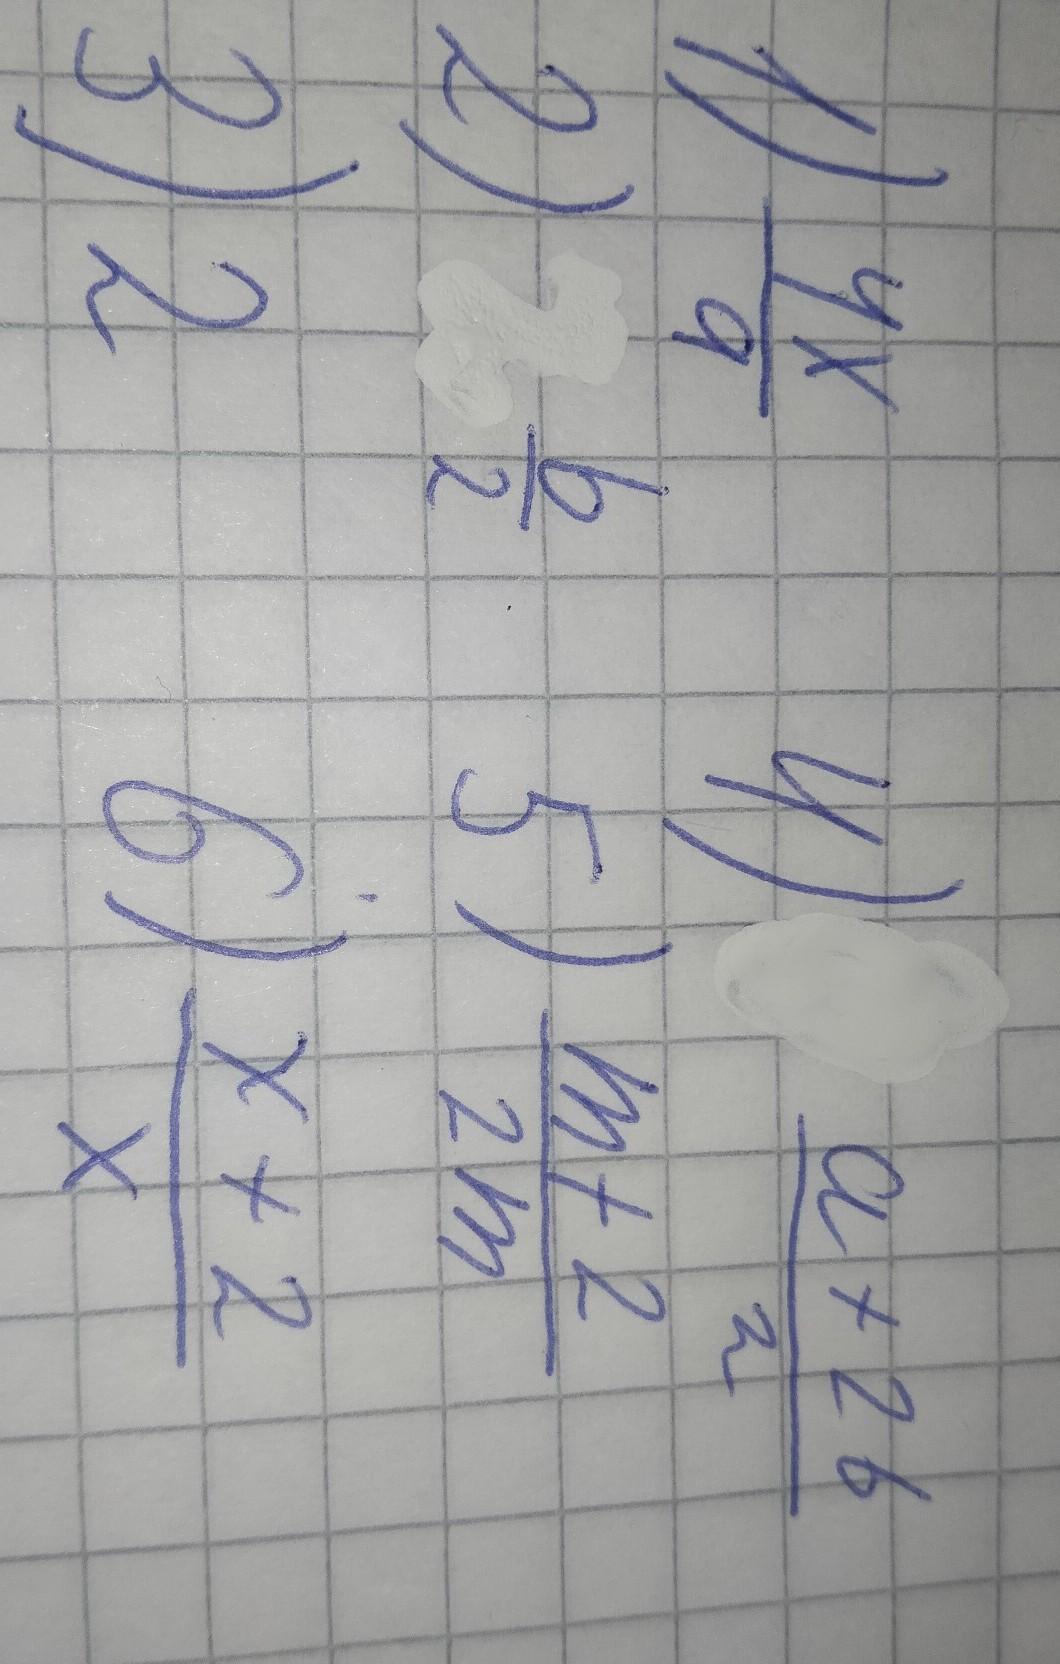 1) 4x/9
2) b/2
3) 2
4) a+2b/2
5) m+2/2m
6) x+2/x